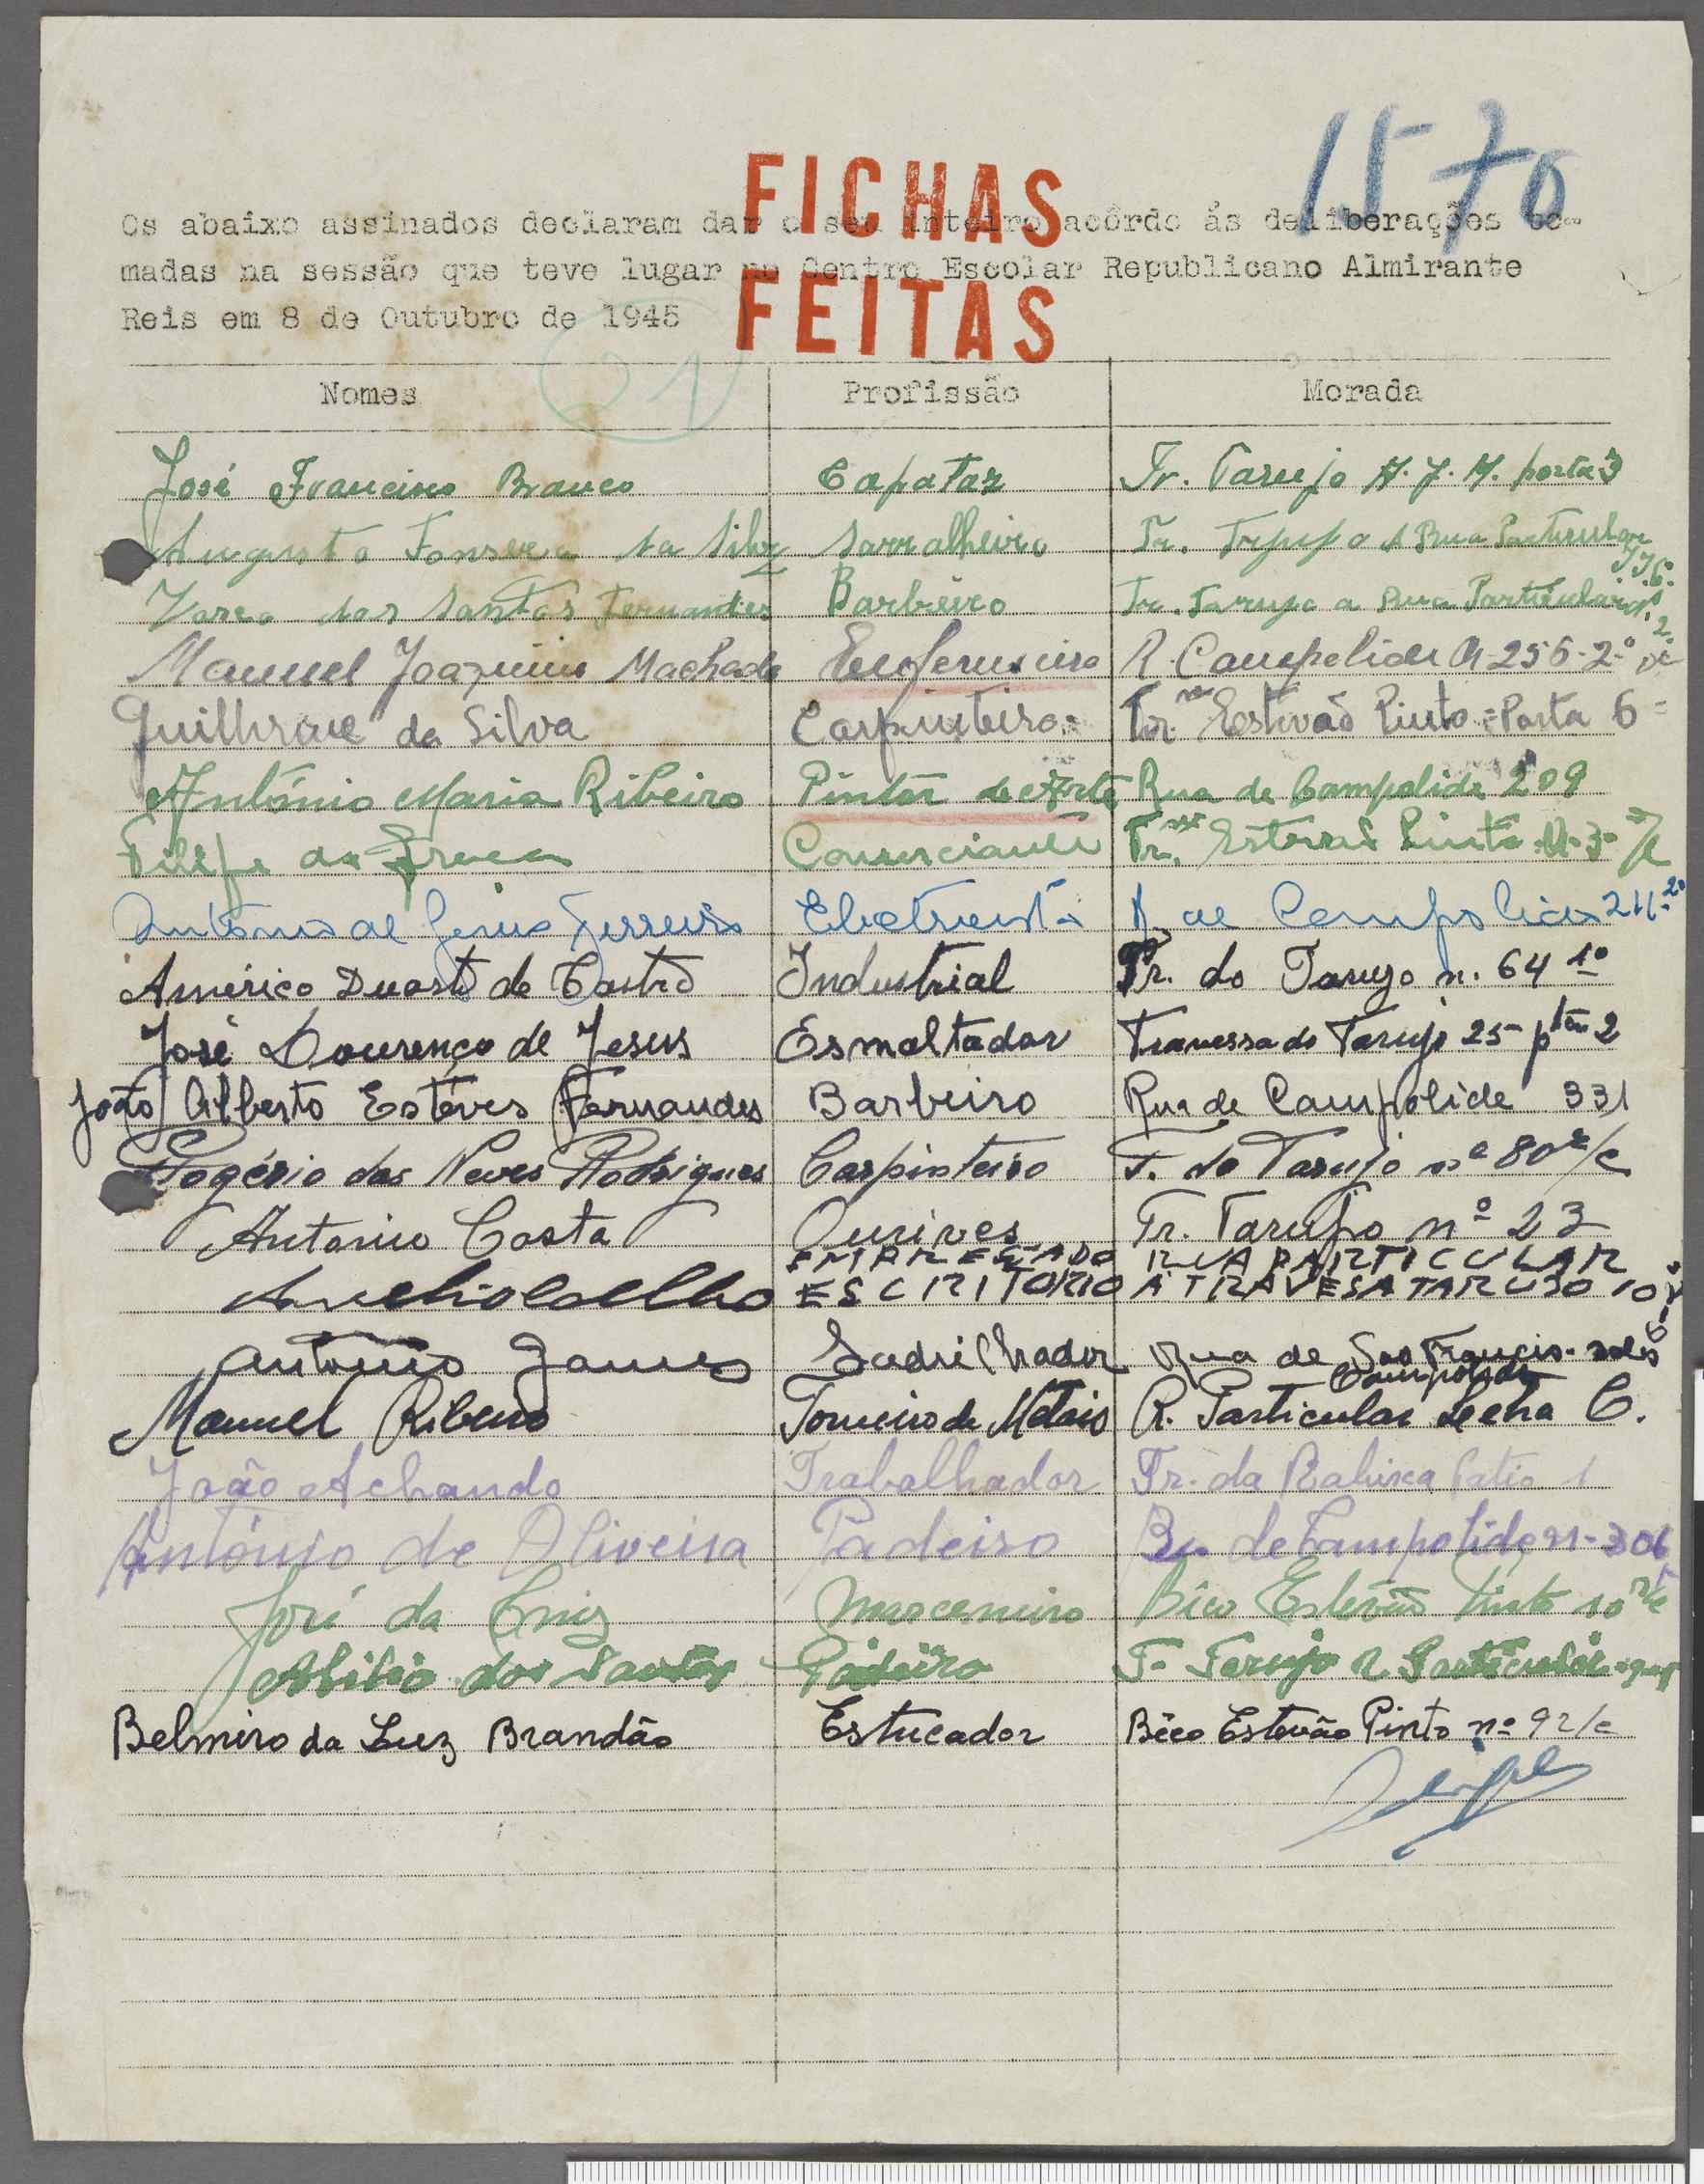 1570
FICHAS
FEITAS
Os abaixo assinados declaram dar o seu inteiro acôrdo ás deliberações to-
madas na sessão que teve lugar no Centro Escolar Republicano Almirante
Reis em 8 de Outubro de 1945
21
Nomes Profissão Morada
José Francisco Branco Capataz Tr. Tarujo A.J.M. porta 3
Augusto Fonseca da Silva Sarralheiro Tr. Tarujo A Rua Particular
Vasco dos Santos Fernandes Barbeiro Tr. Tarujo a Rua Particular
Manuel Joaquim Machado Enfermeiro R. Campolide 256-2º
Guilhrme da Silva Carpinteiro Estevão Pinto Porta 6
António Maria Ribeiro Pintor de Arte Rua de Campolide 209
Filipe da Comerciante Pinto
António de Jesus Ferreira Eletrecista R. de Campolide 211-2º
Américo Duarte de Castro Industrial Tr. do Tarujo n. 64 1º
José Lourenço de Jesus Esmaltador Travessa do Tarujo 25 - pta 2
João Alberto Estêves Fernandes Barbeiro Rua de Campolide 331
Rogério das Neves Rodrigues Carpinteiro T. do Tarujo nº 80 r/c
Antonio Costa Ourives Tr. Tarujo nº 23
EMPREGADO RUA PARTICULAR
Coelho ESCRITORIO A TRAVESA TARUJO 10
António Ladrilhador Rua de Sao Francis. Sales
Campolide
Manuel Ribeiro Torneiro de Metais R. Particular Letra C.
João Achando Trabalhador Tr. da Rabixa Patio 1
António de Oliveira Padeiro de Campolide 306
José da Cruz Marceneiro Bêco Estêvão Pinto 10 r/c
Abilio dos Santos Padeiro T. Tarujo R Particular
Belmiro da Luz Brandão Estucador Bêco Estevão Pinto nº 9 r/c